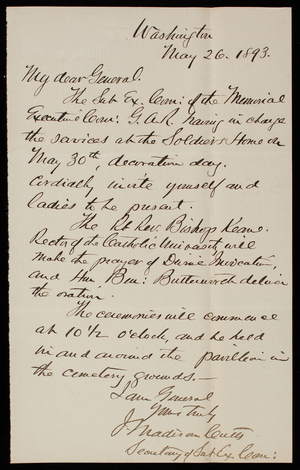 Washington
May 26. 1893.
My dear General.
The Sub Ex. Com: of the Memorial
Executive Com: G.A.R. having in charge
the services at the Soldiers Home on
May 30th, decoration day.
Cordially invite yourself and
ladies to be present.
The Rt Rev. Bishop Keane.
Rector of the Catholic University will
make the prayer of Divine Invocation,
and Hon Ben: Butterworth deliver
the oration.
The ceremonies will commence
at 10 1/2 o'clock, and be held
in and around the pavilion in
the cemetery grounds.—
I am General
Yours truly
J Madison Cutts
Secretary of Sub Ex. Com: